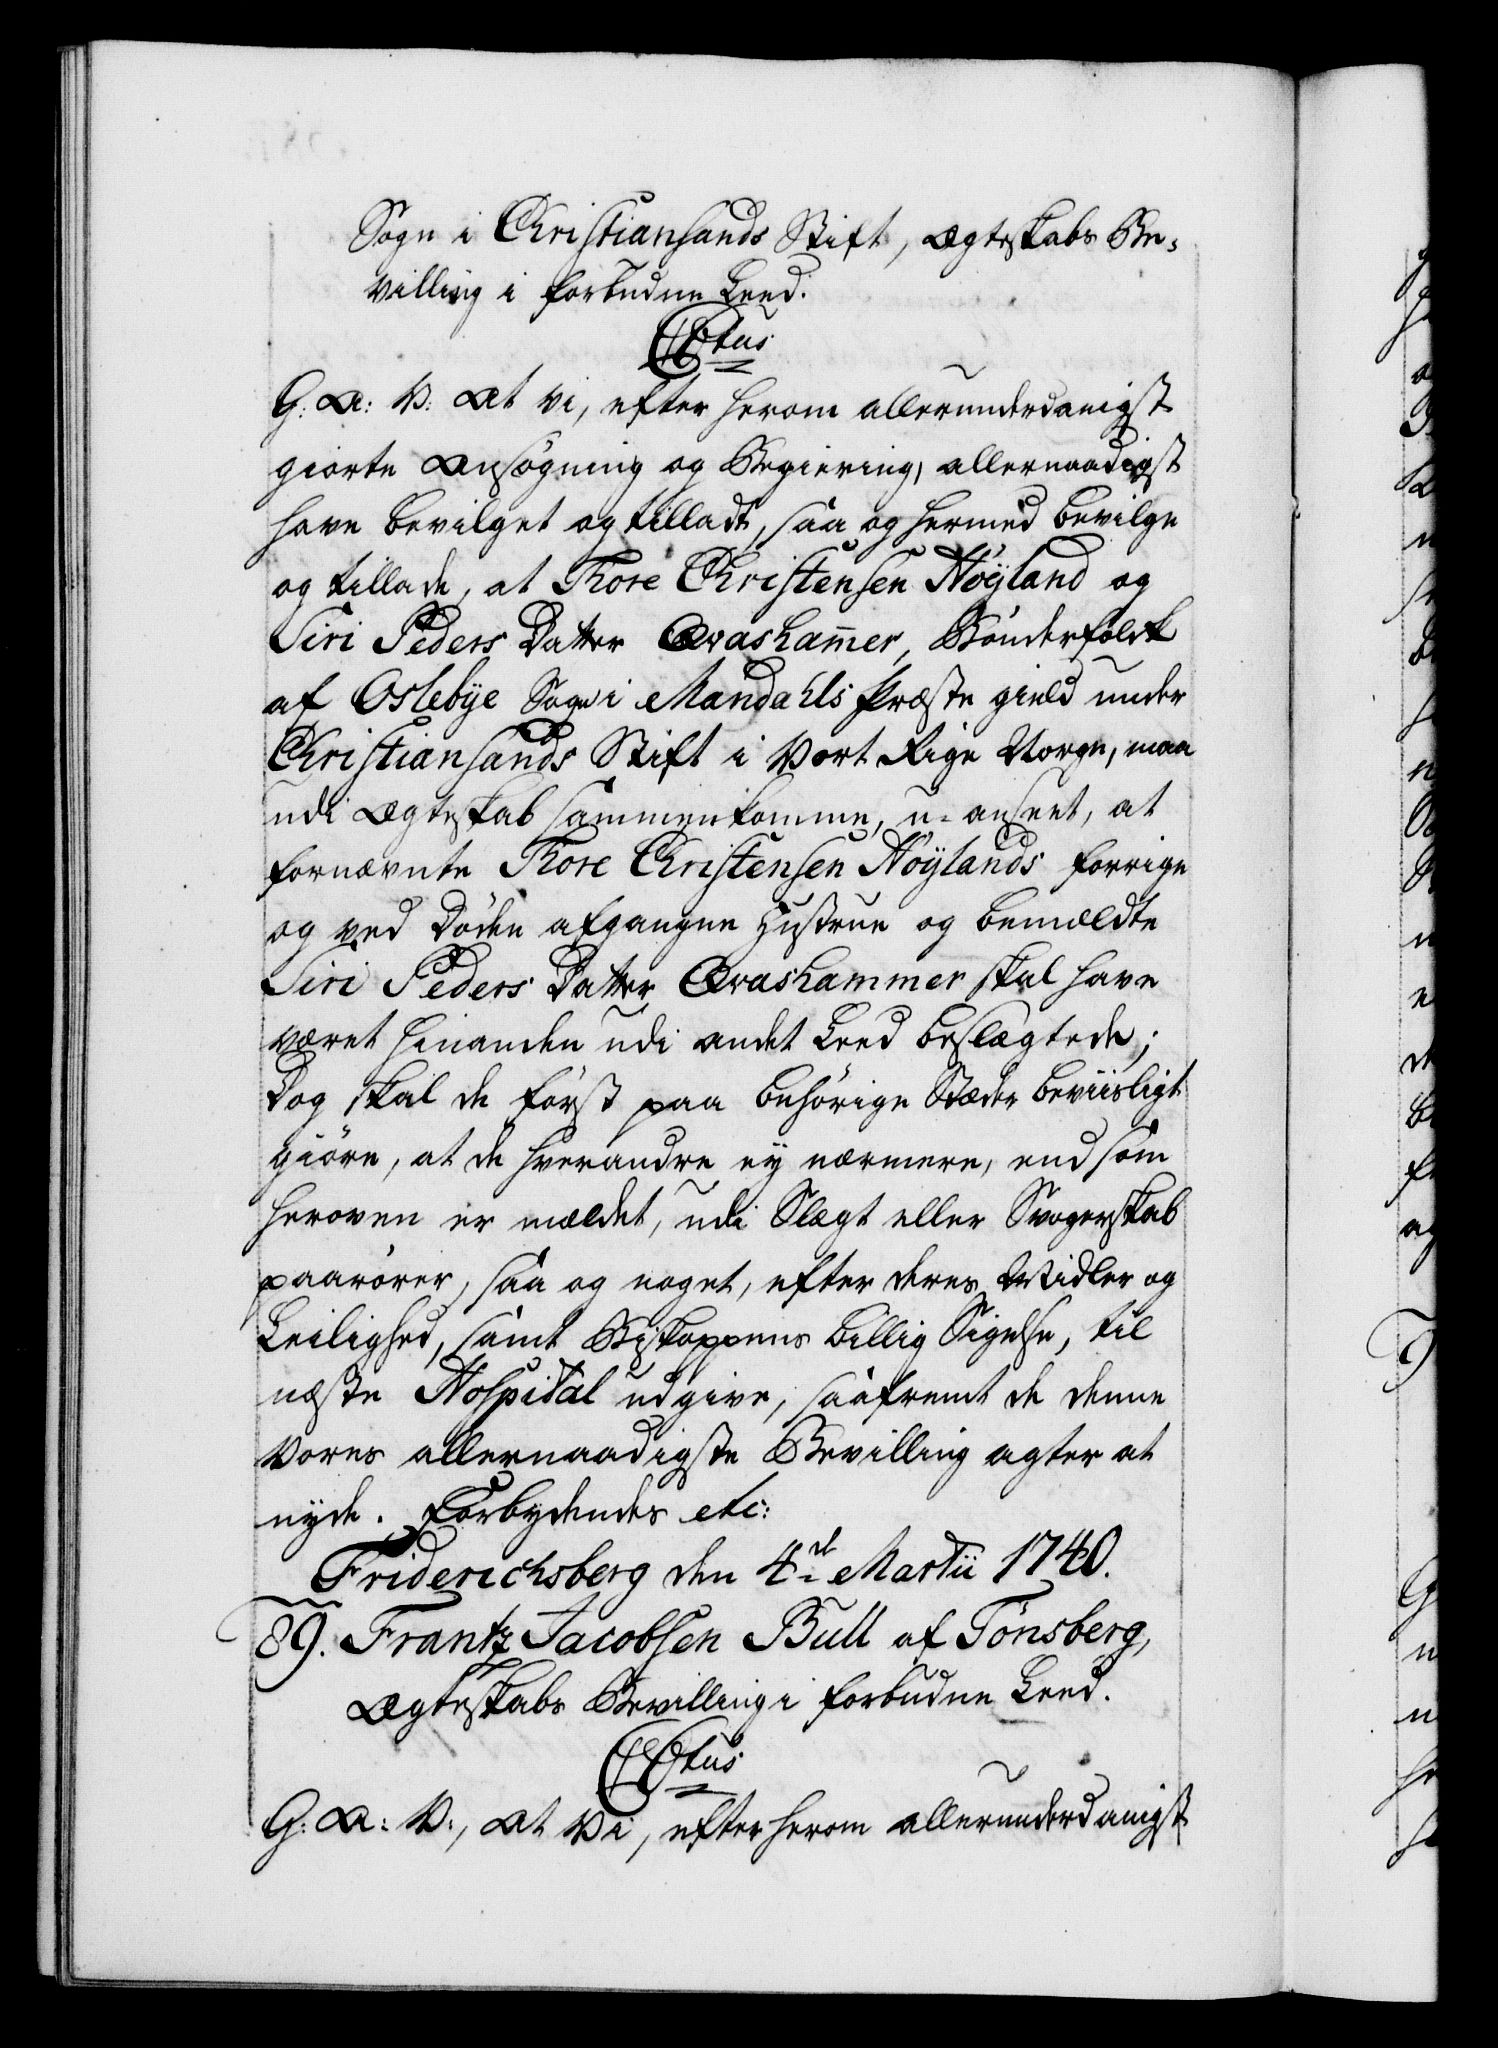 Sogn i Christiansands Stift, Ægteskabs Be-
villing i forbudne Leed.
C6tus
G: A: V: At vi, efter herom allerunderdanigst
giorte Ansøgning og Begiering, allernaadigst
have bevilget og tilladt, saa og hermed bevilge
og tillade, at Thore Christensen Höyland og
Siri Peders Datter Qvasham̄er, Bönderfolck
af Oslebÿe Sogn i Mandahls Præste gield under
Christiansands Stift i Vort Rige Norge, maa
udi Ægteskab sammenkomme, u-anseet, at
fornævnte Thore Christensen Höylands forrige
og ved Döden afgangne Hustrue og bemældte
Siri Peders Datter Qvashammer skal have
været hinanden udi andet Leed beslægtede;
Dog skal de först paa behörige Stæder beviisligt
giöre, at de hverandre ey nærmere, end som
heroven er mældet, udi Slægt eller Svogerskab
paarörer, saa og noget, efter deres Midler og
Leilighed, samt Biskoppens billig Sigelse, til
næste Hospital udgive, saafremt de denne
vores allernaadigste Bevilling agter at
nyde. Forbydendes etc:
Friderichsberg den 4de Martii 1740.
89. Frantz Jacobsen Bull af Tönsberg,
Ægteskabs Bevilling i forbudne Leed.
C6tus
G: A: V:, At Vi, efter herom allerunderdanigst